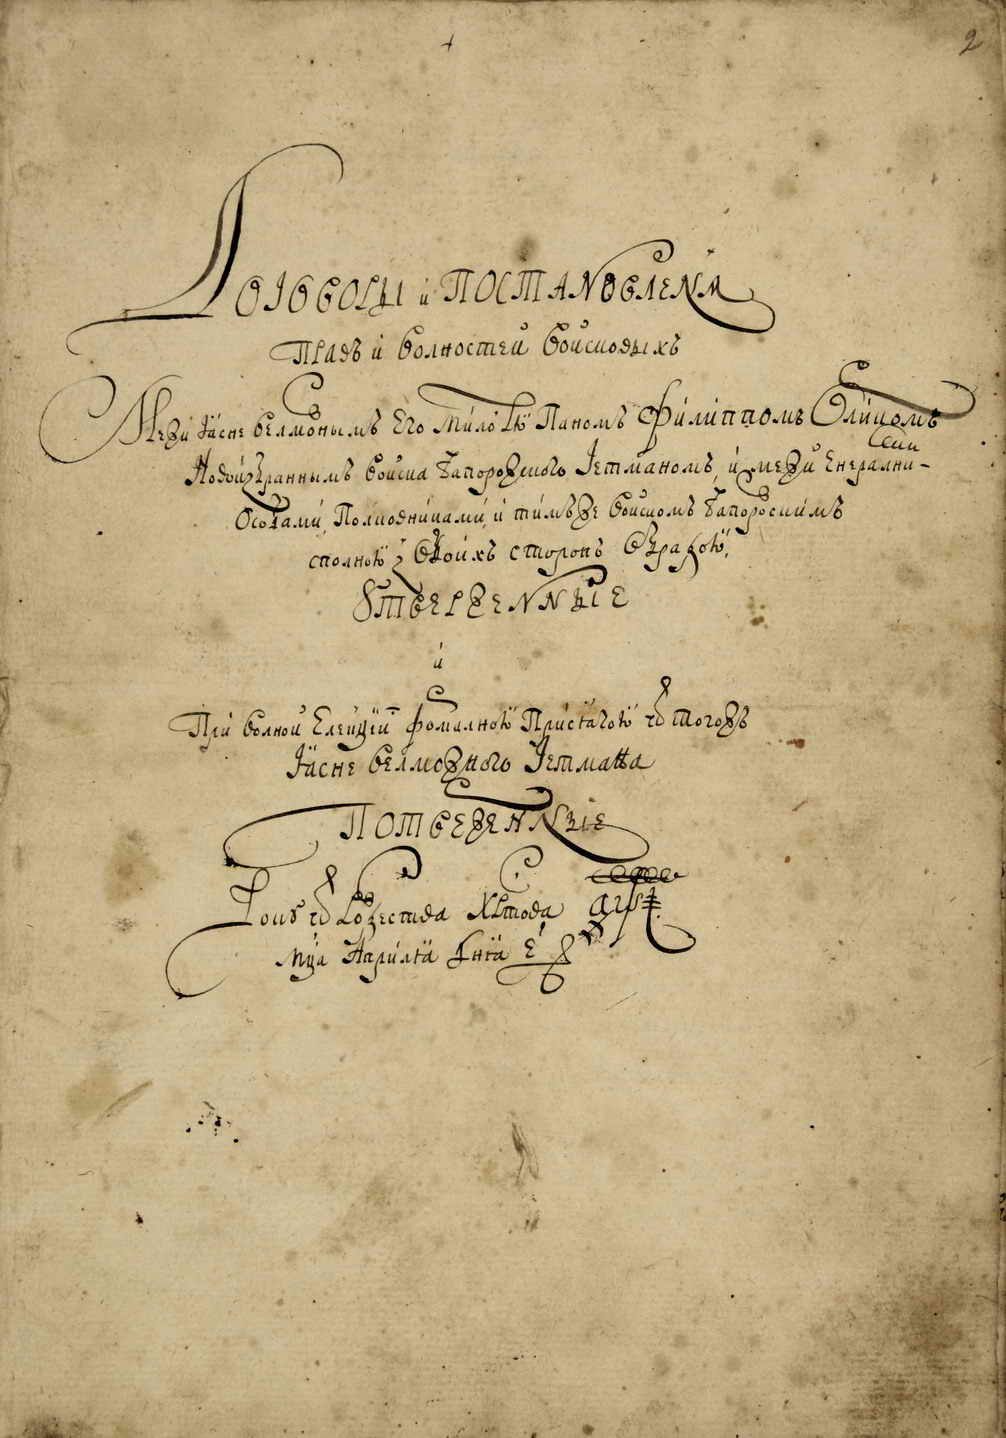 2
Договоры и Постановлεнѧ
Правъ и волностей войсковыхъ
Мези Ясне велможнымъ Его Милостю Паномъ Филиппомъ Орликомъ
Новоизбраннымъ войска Запорожского Гетманомъ, и мези Енерални-
ми
Особами, Полковниками, и тимъже войскомъ Запорозскимъ
сполною з обоихъ сторонъ обрадою,
Утверженные
и
При волной Елекціи формалною Присягою ѿ тогожъ
Ясне велможного Гетмана
Потверженные
Року ѿ Рожества Христова
мца Априля дня е҃